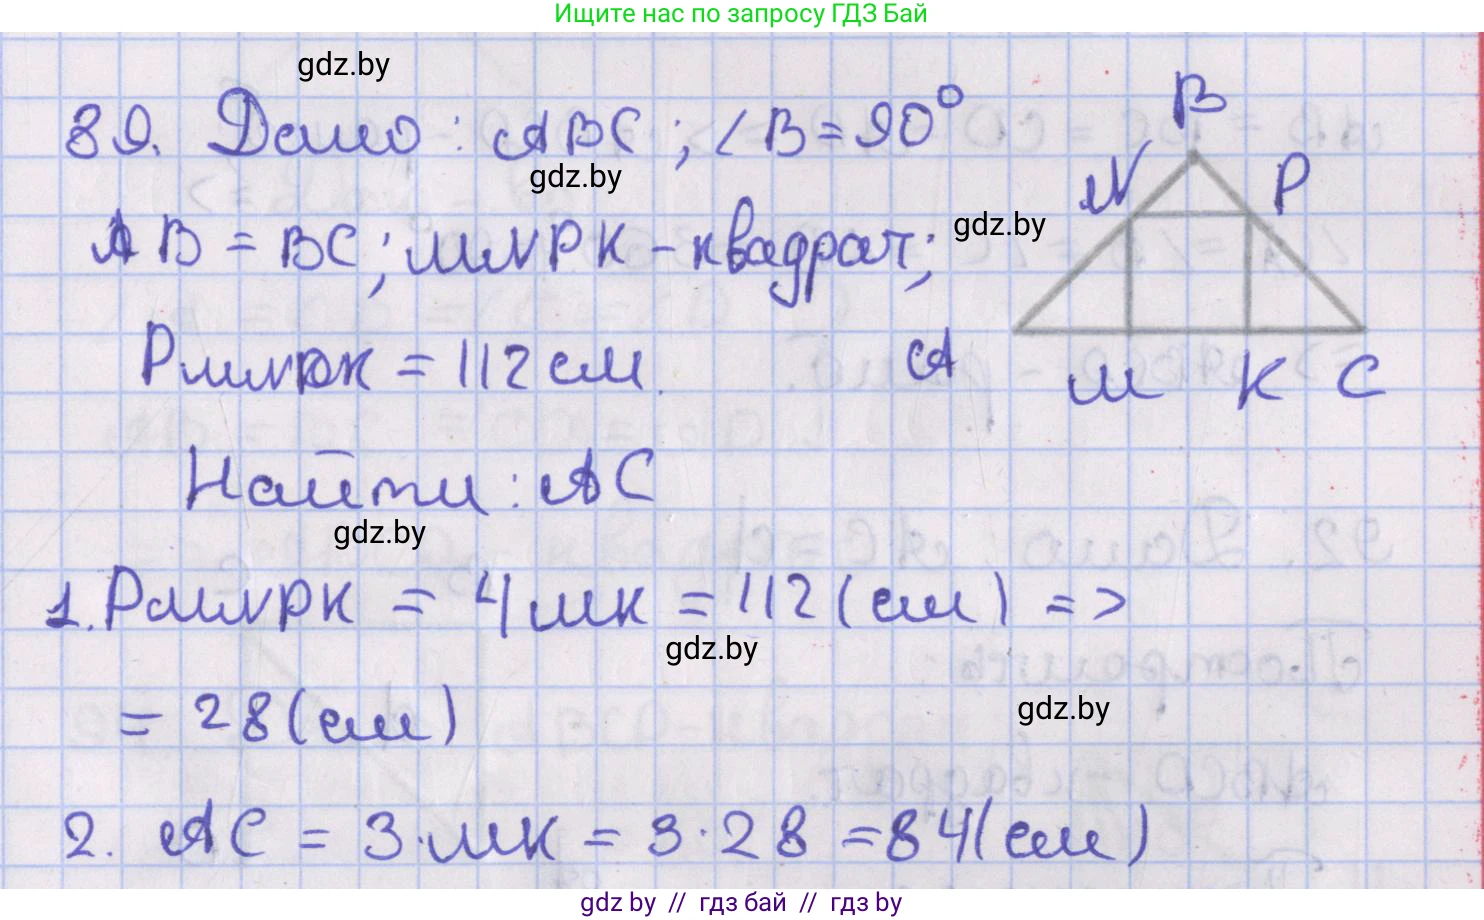 Ищите нас по запросу ГДЗ Бай
gdz.by
89. Дано: ABC; ∠B=90°
gdz.by
AB = BC; MNPK - квадрат;
gdz.by
PMNPK = 112 см.
Найти: AC
gdz.by
B
N
P
A
M
K
C
1. PMNPK = 4MK = 112 (см) =>
gdz.by
= 28 (см)
gdz.by
2. AC = 3·MK = 3·28 = 84 (см)
gdz.by // гдз бай // гдз by